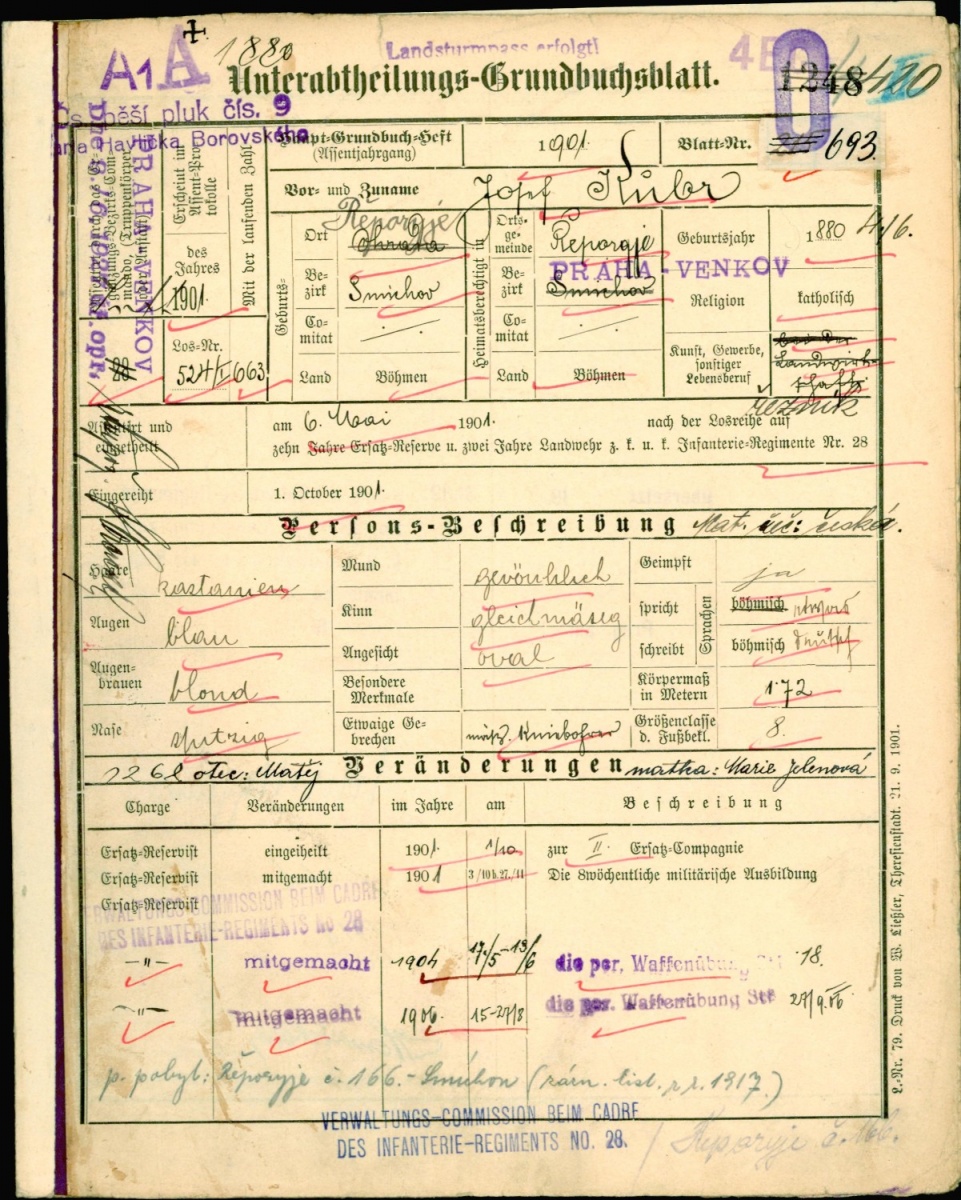 A1 A 1880
Landsturmpass erfolgt!
Unterabtheilungs-Grundbuchsblatt.
1248
pěší pluk čís. 9
Havlíčka Borovského
PRAHA-VENKOV
Haupt-Grundbuch-Heft
(Assentjahrgang)
1901.
Blatt-Nr.
693.
Vor- und Zuname
Josef Kubr
Erscheint im Assent-Protokolle
des Jahres
1901.
Mit der laufenden Zahl
Los-Nr.
524/I 663
Geburts-
Ort
Řeporyje
Bezirk
Smichov
Comitat
Land
Böhmen
Heimatsberechtigt in
Ortsgemeinde
Řeporyje
Bezirk
PRAHA-VENKOV
Smichov
Comitat
Land
Böhmen
Geburtsjahr
1880 4/6.
Religion
katholisch
Kunst, Gewerbe, sonstiger Lebensberuf
Landwirthschaft
řezník
Assentirt und eingetheilt
am 6. Mai 1901. nach der Losreihe auf
zehn Jahre Ersatz-Reserve u. zwei Jahre Landwehr z. k. u. k. Infanterie-Regimente Nr. 28
Eingereiht
1. October 1901.
Persons-Beschreibung
Haare
kastanien
Augen
blau
Augenbrauen
blond
Nase
spitzig
Mund
gevöhnlich
Kinn
gleichmäsig
Angesicht
oval
Besondere Merkmale
Etwaige Gebrechen
mäß. Kniebohrer
Geimpft
ja
Sprachen
spricht
böhmisch
schreibt
böhmisch deutsch
Körpermaß in Metern
1·72
Größenclasse d. Fußbekl.
8.
1261 otec: Matěj Veränderungen matka: Marie Jelenová
Charge Veränderungen im Jahre am Beschreibung
Ersatz-Reservist eingeiheilt 1901 1/10 zur II. Ersatz-Compagnie
Ersatz-Reservist mitgemacht 1901 3/10 b. 27./11 Die 8wöchentliche militärische Ausbildung
Ersatz-Reservist
VERWALTUNGS-COMMISSION BEIM CADRE
DES INFANTERIE-REGIMENTS No 28
-"- mitgemacht 1904 17/5-13/6 die per. Waffenübung 18.
-"- mitgemacht 1906 15-27/8 die per. Waffenübung Stß 27/9.06
p. pobyt: Řeporyje č. 166.- Smíchov (zárn. list. z r. 1917.)
VERWALTUNGS-COMMISSION BEIM CADRE
DES INFANTERIE-REGIMENTS NO. 28.
Řeporyje č. 166.
L.-Nr. 79. Druck von W. Ließler, Theresienstadt. 21. 9. 1901.